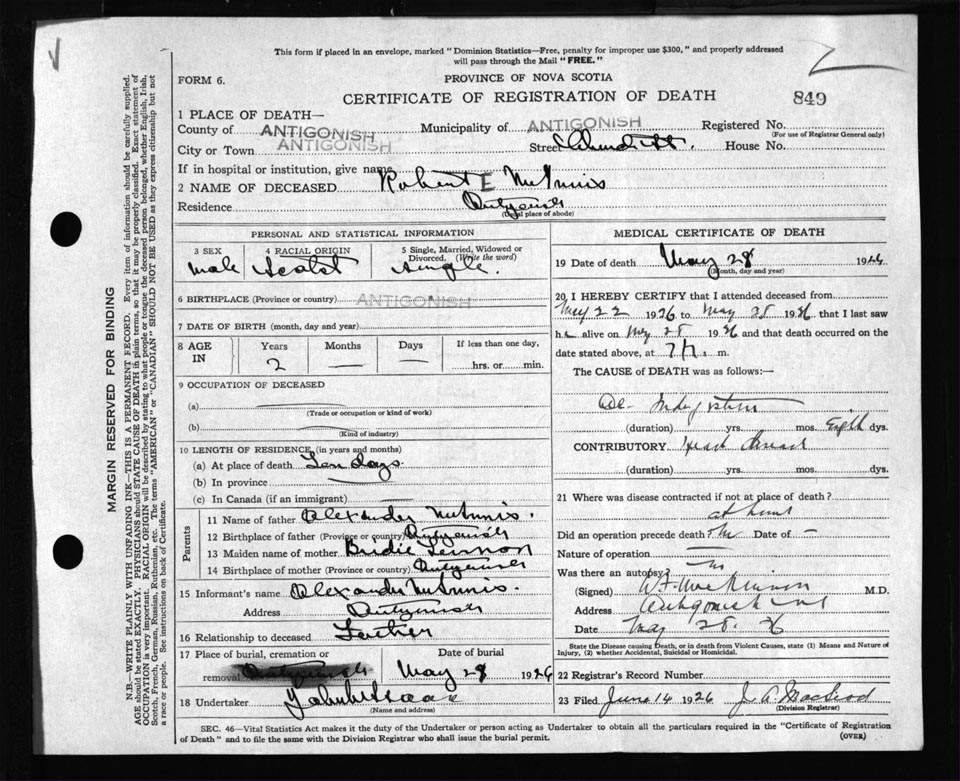 This form if placed in an envelope, marked "Dominion Statistics—Free, penalty for improper use $300," and properly addressed
will pass through the Mail "FREE."
FORM 6.
PROVINCE OF NOVA SCOTIA
CERTIFICATE OF REGISTRATION OF DEATH
849
1 PLACE OF DEATH—
County of ANTIGONISH Municipality of ANTIGONISH Registered No.
(For use of Registrar General only)
City or Town ANTIGONISH Street Church St. House No.
If in hospital or institution, give name
2 NAME OF DECEASED Robert E McInnis
Residence Antigonish
(Usual place of abode)
PERSONAL AND STATISTICAL INFORMATION
3 SEX 4 RACIAL ORIGIN 5 Single, Married, Widowed or
Divorced. (Write the word)
male Scotch single.
6 BIRTHPLACE (Province or country) ANTIGONISH
7 DATE OF BIRTH (month, day and year)
8 AGE IN Years Months Days If less than one day,
2 — — hrs. or min.
9 OCCUPATION OF DECEASED
(a)
(Trade or occupation or kind of work)
(b)
(Kind of industry)
10 LENGTH OF RESIDENCE (in years and months)
(a) At place of death Ten days
(b) In province
(c) In Canada (if an immigrant)
Parents
11 Name of father Alexander McInnis.
12 Birthplace of father (Province or country) Antigonish
13 Maiden name of mother Bridie Lennon
14 Birthplace of mother (Province or country) Antigonish
15 Informant's name Alexander McInnis.
Address Antigonish
16 Relationship to deceased Father
17 Place of burial, cremation or Date of burial
removal Antigonish May 28 1926
18 Undertaker
(Name and address)
MEDICAL CERTIFICATE OF DEATH
19 Date of death May 28 1926
(Month, day and year)
20 I HEREBY CERTIFY that I attended deceased from
May 22 1926 to May 28 1926 that I last saw
h alive on May 28 1926 and that death occurred on
date stated above, at m.
The CAUSE of DEATH was as follows:—
Ac- Indigestion
(duration) yrs. mos. Eighth dys.
CONTRIBUTORY Heart
(duration) yrs. mos. dys.
21 Where was disease contracted if not at place of death?
at home
Did an operation precede death? no Date of —
Nature of operation —
Was there an autopsy? no
(Signed) W F MacKinnon M.D.
Address Antigonish
Date May 28. 26
State the Disease causing Death, or in death from Violent Causes, state (1) Means and Nature of
Injury, (2) whether Accidental, Suicidal or Homicidal.
22 Registrar's Record Number
23 Filed June 14 1926 J. A. Macleod
(Division Registrar)
SEC. 46—Vital Statistics Act makes it the duty of the Undertaker or person acting as Undertaker to obtain all the particulars required in the "Certificate of Registration
of Death" and to file the same with the Division Registrar who shall issue the burial permit.
(OVER)
MARGIN RESERVED FOR BINDING
N.B.—WRITE PLAINLY WITH UNFADING INK—THIS IS A PERMANENT RECORD. Every item of information should be carefully supplied.
AGE should be stated EXACTLY. PHYSICIANS should STATE CAUSE OF DEATH in plain terms, so that it may be properly classified. Exact statement of
OCCUPATION is very important. RACIAL ORIGIN will be described by stating to what people or tongue the deceased person belonged, whether English, Irish,
Scotch, French, German, Russian, Ruthenian, etc. The terms "AMERICAN" or "CANADIAN" SHOULD NOT BE USED as they express citizenship but not
a race or people. See instructions on back of Certificate.